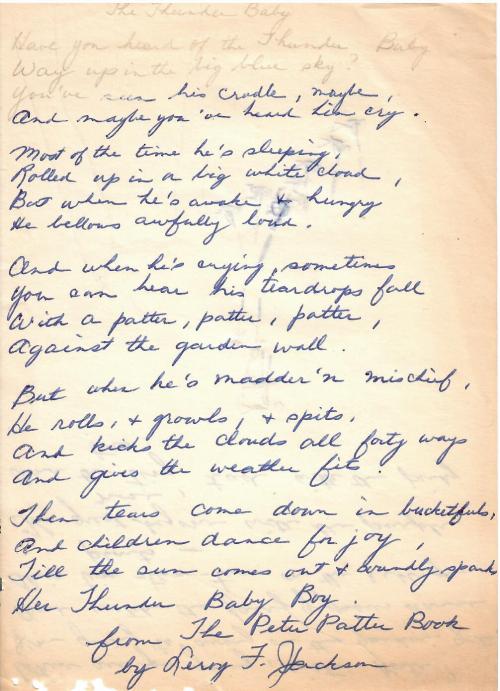 The Thunder Baby
Have you heard of the Thunder Baby
Way up in the big blue sky?
You've seen his cradle, maybe,
And maybe you've heard him cry.
Most of the time he's sleeping,
Rolled up in a big white cloud,
But when he's awake & hungry
He bellows awfully loud.
And when he's crying, sometimes
You can hear his teardrops fall
With a patter, patter, patter,
Against the garden wall.
But when he's madder'n mischief,
He rolls, & growls, & spits,
And kicks the clouds all forty ways
And gives the weather fits.
Then tears come down in bucketfuls,
And children dance for joy,
Till the sun comes out & soundly spanks
Her Thunder Baby Boy.
from The Peter Patter Book
by Leroy F. Jackson